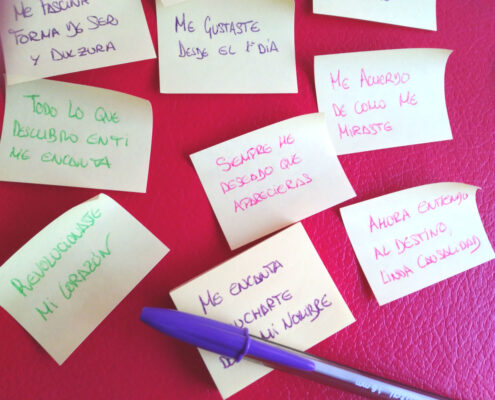 ME FASCINA
FORMA DE SER
Y DULZURA
ME GUSTASTE
DESDE EL 1º DÍA
ME ACUERDO
DE COMO ME
MIRASTE
TODO LO QUE
DESCUBRO EN TI
ME ENCANTA
SIEMPRE HE
DESEADO QUE
APARECIERAS
AHORA ENTIENDO
AL DESTINO,
LINDA CAUSALIDAD
REVOLUCIONASTE
MI CORAZÓN
ME ENCANTA
MI NOMBRE